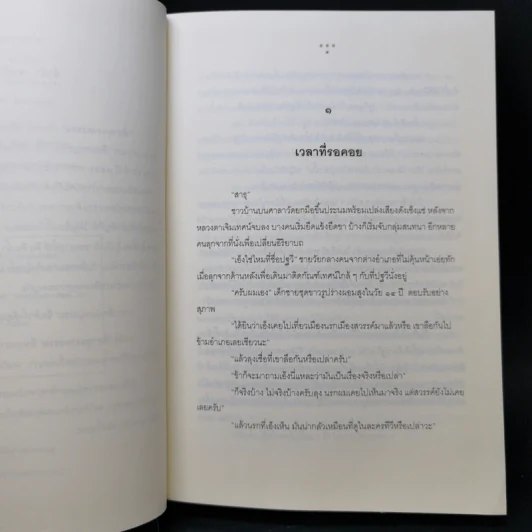 ๑
เวลาที่รอคอย
“สาธุ”
ชาวบ้านบนศาลาวัดยกมือขึ้นประนมพร้อมเปล่งเสียงดังเซ็งแซ่ หลังจาก
หลวงตาเจิมเทศน์จบลง บางคนเริ่มยืดแข้งยืดขา บ้างก็เริ่มจับกลุ่มสนทนา อีกหลาย
คนลุกจากที่นั่งเพื่อเปลี่ยนอิริยาบถ
“เอ็งใช่ไหมที่ชื่อปฐวี” ชายวัยกลางคนจากต่างอำเภอที่ไม่คุ้นหน้าเอ่ยทัก
เมื่อลุกจากด้านหลังเพื่อเดินมาติดกัณฑ์เทศน์ใกล้ ๆ กับที่ปฐวีนั่งอยู่
“ครับผมเอง” เด็กชายชุดขาวรูปร่างผอมสูงในวัย ๑๔ ปี ตอบรับอย่าง
สุภาพ
“ได้ยินว่าเอ็งเคยไปเที่ยวเมืองนรกเมืองสวรรค์มาแล้วหรือ เขาลือกันไป
ข้ามอำเภอเลยเชียวนะ”
“แล้วลุงเชื่อที่เขาลือกันหรือเปล่าครับ”
“ข้าก็จะมาถามเอ็งนี่แหละว่ามันเป็นเรื่องจริงหรือเปล่า”
“ก็จริงบ้าง ไม่จริงบ้างครับลุง นรกผมเคยไปเห็นมาจริง แต่สวรรค์ยังไม่เคย
เลยครับ”
“แล้วนรกที่เอ็งเห็น มันน่ากลัวเหมือนที่ดูในละครทีวีหรือเปล่าวะ”